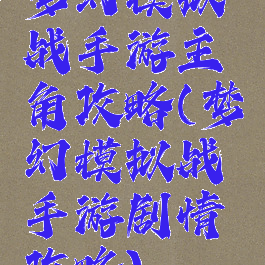 梦幻模拟
战手游主
角攻略(梦
幻模拟战
手游剧情
攻略)